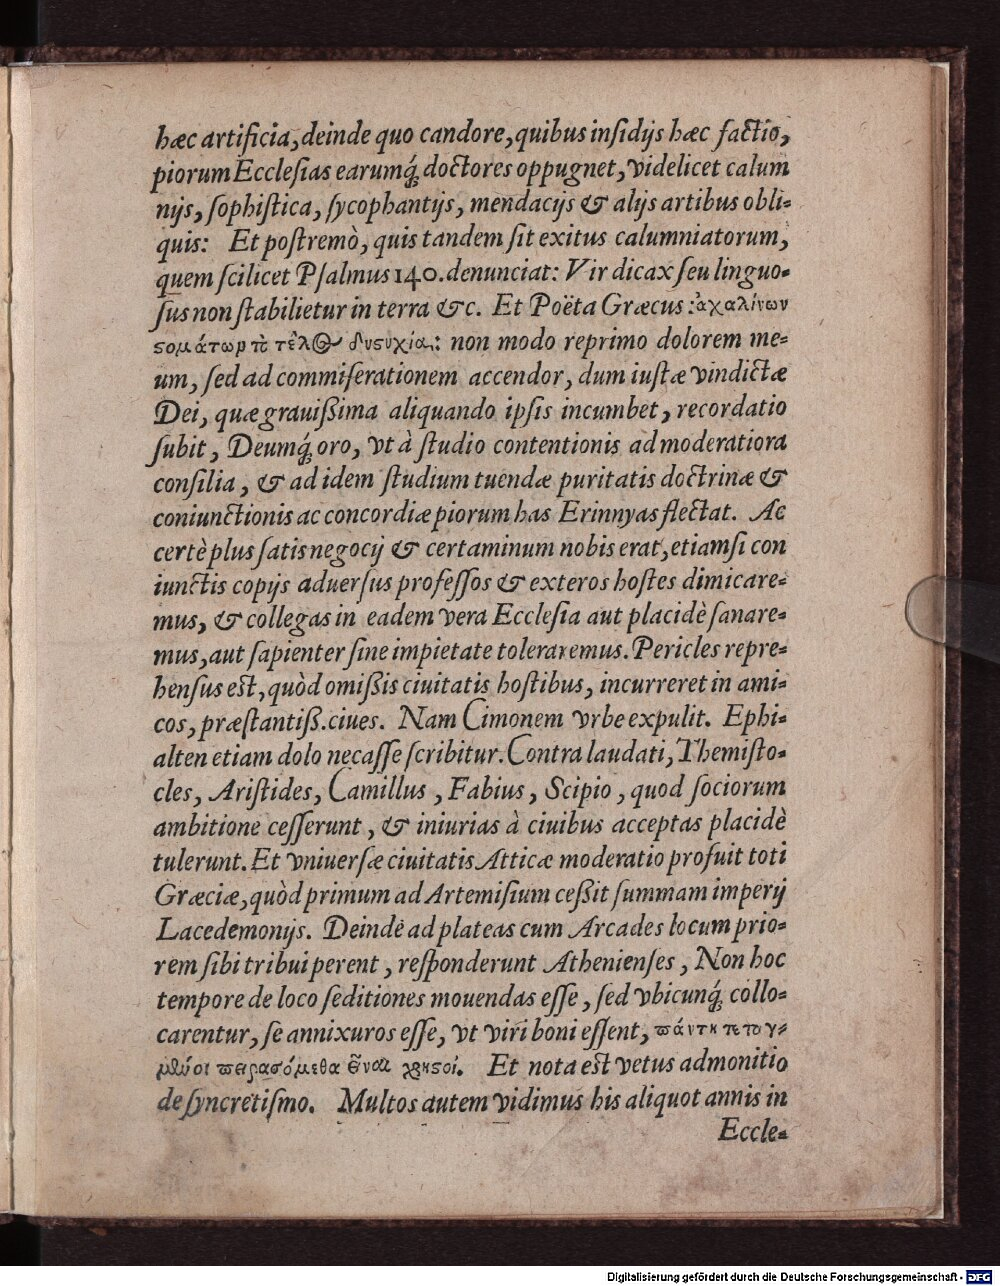 hæc artificia, deinde quo candore, quibus insidijs hæc factio,
piorum Ecclesias earumq́; doctores oppugnet, videlicet calum
nijs, sophistica, sycophantijs, mendacijs & alijs artibus obli=
quis: Et postremò, quis tandem sit exitus calumniatorum,
quem scilicet Psalmus 140. denunciat: Vir dicax seu linguo=
sus non stabilietur in terra &c. Et Poëta Græcus: ἀχαλίνων
ϛομάτωμ τὸ τέλος δυϛυχία: non modo reprimo dolorem me=
um, sed ad commiserationem accendor, dum iustæ vindictæ
Dei, quæ grauißima aliquando ipsis incumbet, recordatio
subit, Deumq́; oro, vt à studio contentionis ad moderatiora
consilia, & ad idem studium tuendæ puritatis doctrinæ &
coniunctionis ac concordiæ piorum has Erinnyas flectat. Ac
certè plus satis negocij & certaminum nobis erat, etiamsi con
iunctis copijs aduersus professos & exteros hostes dimicare=
mus, & collegas in eadem vera Ecclesia aut placidè sanare=
mus, aut sapienter sine impietate toleraremus. Pericles repre=
hensus est, quòd omißis ciuitatis hostibus, incurreret in ami=
cos, præstantiß. ciues. Nam Cimonem vrbe expulit. Ephi=
alten etiam dolo necasse scribitur. Contra laudati, Themisto=
cles, Aristides, Camillus, Fabius, Scipio, quod sociorum
ambitione cesserunt, & iniurias à ciuibus acceptas placidè
tulerunt. Et vniuersæ ciuitatis Atticæ moderatio profuit toti
Græciæ, quòd primum ad Artemisium ceßit summam imperij
Lacedemonijs. Deindè ad plateas cum Arcades locum prio=
rem sibi tribui perent, responderunt Athenienses, Non hoc
tempore de loco seditiones mouendas esse, sed vbicunq́; collo=
carentur, se annixuros esse, vt viri boni essent, πάντη τεταγ=
μένοι πειρασόμεθα εἶναι χρηϛοί. Et nota est vetus admonitio
de syncretismo. Multos autem vidimus his aliquot annis in
Eccle=
Digitalisierung gefördert durch die Deutsche Forschungsgemeinschaft - DFG